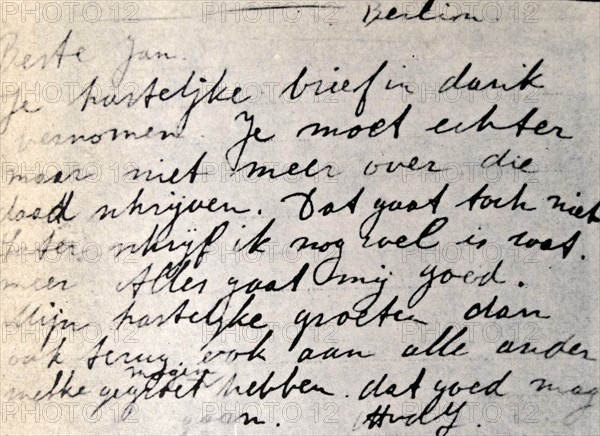 Berlin.
Beste Jan.
Je hartelijke brief in dank
vernomen. Je moet echter
maar niet meer over die
daad schrijven. Dat gaat toch niet
later schrijf ik nog wel is wat.
meer Alles gaat mij goed.
Mijn hartelijke groeten dan
ook terug ook aan alle ander
mogen
welke gegroet hebben. dat goed mag
gaan.